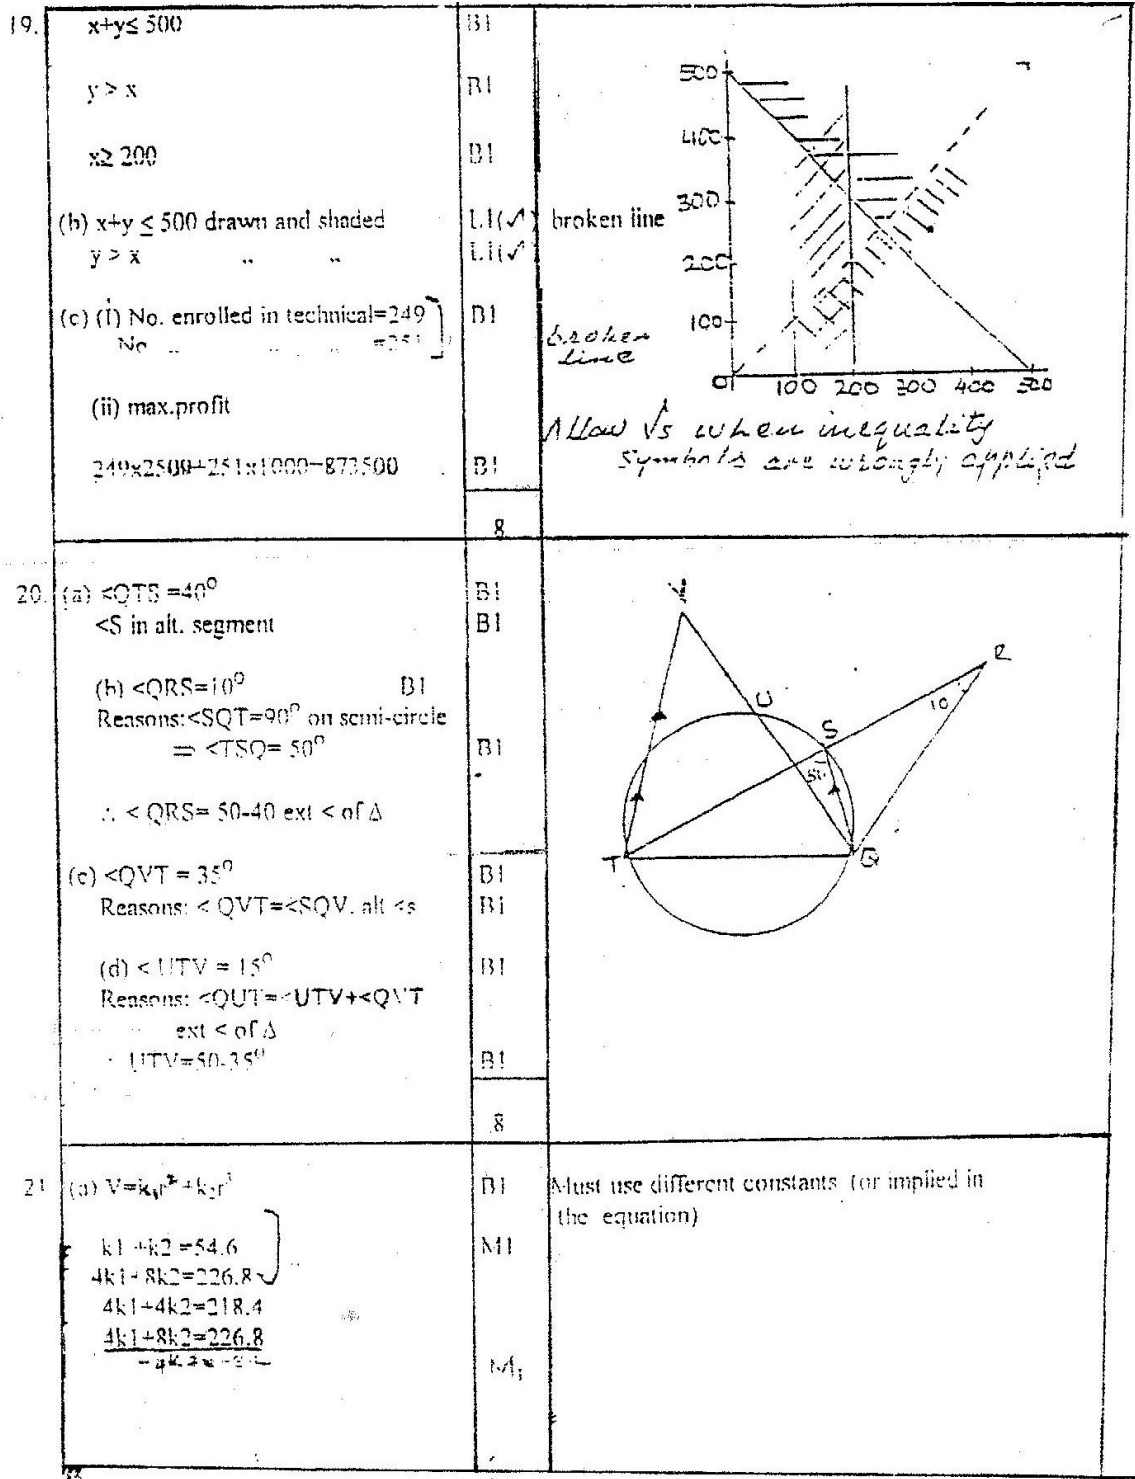 19.
x+y≤ 500 B1
y > x B1
x≥ 200 B1
(b) x+y ≤ 500 drawn and shaded L1(√) broken line
y > x " " L1(√
(c) (i) No. enrolled in technical=249 B1
No " " " =251
broken
line
(ii) max.profit
249x2500+251x1000=873500 B1
8
500
400
300
200
100
0 100 200 300 400 500
Allow √s when inequality
symbols are wrongly applied
20. (a) <QTS =40° B1
<S in alt. segment B1
(b) <QRS=10° B1
Reasons:<SQT=90° on semi-circle
⇒ <TSQ= 50° B1
∴ < QRS= 50-40 ext < of Δ
(c) <QVT = 35° B1
Reasons: < QVT=<SQV. alt <s B1
(d) < UTV = 15° B1
Reasons: <QUT=<UTV+<QVT
ext < of Δ
∴ UTV=50-35° B1
8
V
R
U
10
S
T
Q
21 (a) V=k₁r²+k₂r³ B1 Must use different constants (or implied in
the equation)
k1 +k2 =54.6 M1
4k1+8k2=226.8
4k1+4k2=218.4
4k1+8k2=226.8
M1